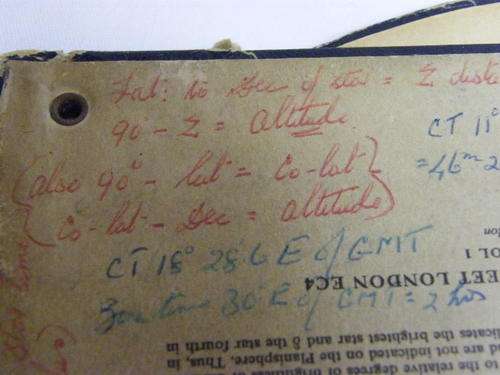 Lat: to Dec of star = Z dist
90 - Z = altitude.
(also 90° - lat = Co-lat)
(Co-lat - Dec = altitude)
CT 18° 28'.6 E of GMT
Zone time 30° E of GMT = 2 hrs
CT 11°
= 46m - 2
OL 1
EET LONDON EC4
icates the brightest star and δ the star fourth in
not are indicated on the Planisphere. Thus, in
to the relative degrees of